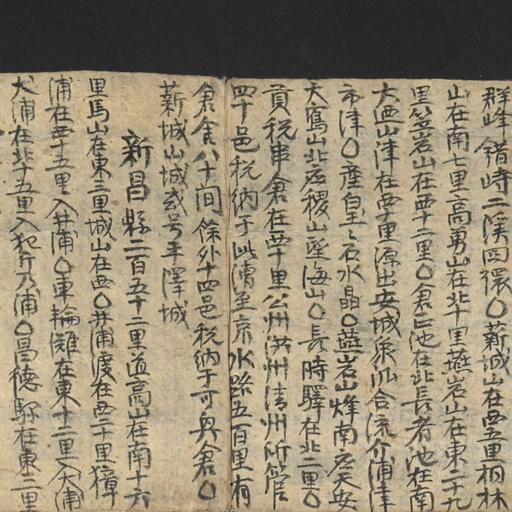 群峰錯峙二溪回環〇薪城山在西五里桐林
山在南七里高勇山在北十里燕岩山在東二十九
里笠岩山在西十二里〇倉岾池在北長者池在南
大迺山津在西十里源出安城衆水合流介浦津
市津〇産皇々石水晶〇燕岩山烽南応天安
大鶴山北応稷山望海山〇長時驛在北二里〇
貢税串倉在西十里公州洪州清州所管
四十邑税納于此漕至京水路五百里有
倉舍八十間餘外十四邑税納于可興倉〇
薪城山城或号平澤城
新昌縣二百五十二里道高山在南十六
里馬山在東三里城山在西〇井浦渡在西二十里獐
浦在西十五里入井浦〇車輪灘在東十二里入大浦
犬浦在北十五里入犯斤乃浦〇昌德驛在東二里